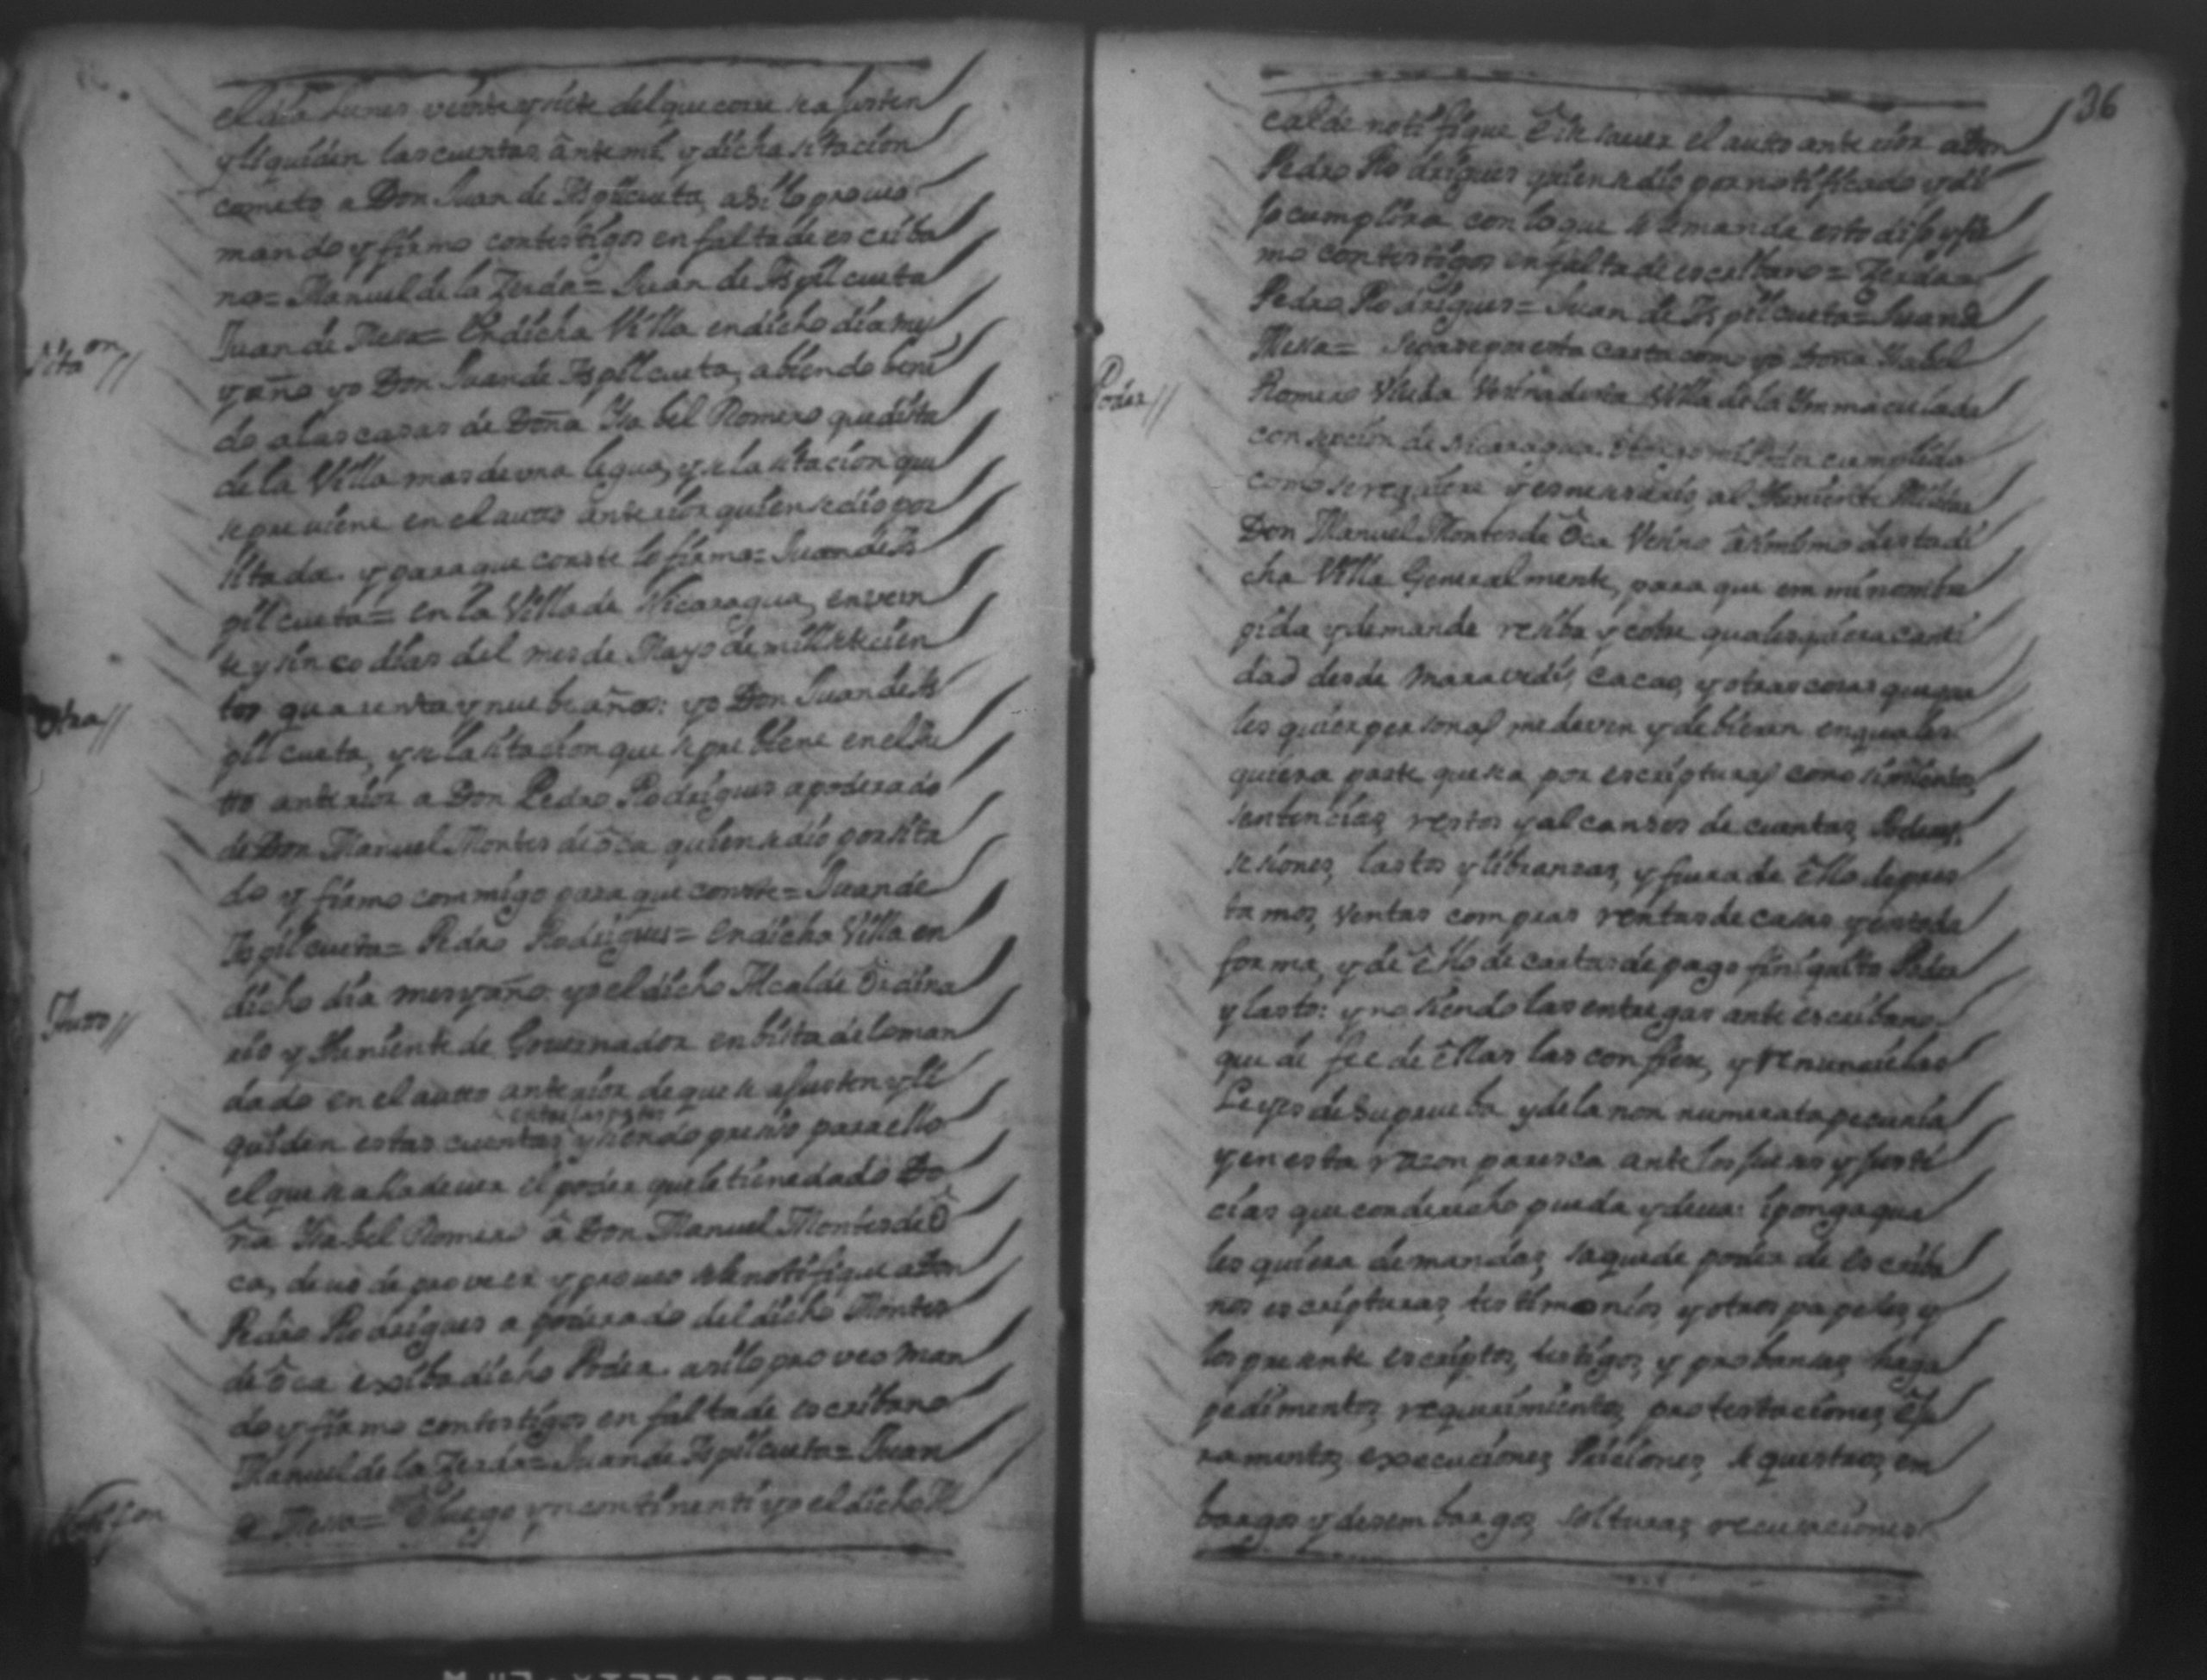 el dia Lunes veinte y siete del que corre se ajusten
y liquiden las cuentas ante mi y dicha sitacion
cometo a Don Juan de Aspilcueta, asi lo proueo
mando y firmo con testigos en falta de escriba
no = Manuel de la Zerda = Juan de Aspilcueta
Juan de Mesa = En dicha Villa en dicho dia mes
Sita on //
y año yo Don Juan de Aspilcueta, abiendo beni
do a las casas de Doña Ysabel Romero que dista
de la Villa mas de una legua, yse la sitacion que
se preuiene en el auto anterior quien se dio por
sitada y para que conste lo firmo = Juan de As
pilcueta = en la Villa de Nicaragua, en vein
te y sinco dias del mes de Mayo de mill setecien
tos quarenta y nuebe años: yo Don Juan de As
Otra //
pilcueta, yse la sitacion que se prebiene en el au
tto anterior a Don Pedro Rodrigues apoderado
de Don Manuel Montes de ôca quien se dio por sita
do y firmo commigo para que conste = Juan de
Aspilcueta = Pedro Rodrigues = En dicha Villa en
dicho dia mes y año yo el dicho Alcalde Ordina
Autto //
rio y Theniente de Gouernador en bista de lo man
dado en el autto anterior de que se ajusten y li
quiden estas cuentas entre las partes y siendo presiso para ello
el que se aha de uer el poder que le tiene dado Do
ña Ysabel Romero â Don Manuel Montes de Ô
ca, deuo de proveer y proueo se le notifique a Don
Pedro Rodrigues apoderado del dicho Montes
de ôca exsiba dicho Poder asi lo proveo man
do y firmo con testigos en falta de escribano
Manuel de la Zerda = Juan de Aspilcueta = Juan
de Mesa = Luego yncontinenti yo el dicho Al
36
calde notifique ê hise sauer el auto anterior a Don
Pedro Rodrigues quien se dio por notificado y di
jo cumplira con lo que se le manda esto dijo y fir
mo con testigos en falta de escribano = Zerda =
Pedro Rodrigues = Juan de Aspilcueta = Juan de
Mesa = Sepase por esta carta como yo Doña Ysabel
Poder //
Romero Viuda Vesina desta Villa de la Ynmaculada
consepcion de Nicaragua. Otorgo mi Poder cumplido
como se requiere y es nesesario, al Theniente Militar
Don Manuel Montes de Ôca Vesino âsimismo desta di
cha Villa Generalmente, para que em mi nombre
pida y demande resiba y cobre qualesquiera canti
dad desde maravedis, cacao, y otras cosas que qua
lesquier personas me deven y debieran en quales
quiera parte que sea por escripturas conosimientos,
sentencias, restos y alcanses de cuentas, Poderes,
sesiones, lastos y libranzas, y fuera de êllo de pres
tamos, ventas compras rentas de casas y en toda
forma, y de êllo de cartas de pago finiquito Poder
y lasto: y no siendo las entregas ante escribano
que de fee de êllas las confiese, y renuncie las
Leyes de su prueba y de la non numerata pecunia
y en esta razon paresca ante los jueses y justi
cias que con derecho pueda y deua: i ponga qua
lesquiera demandas, saque de poder de escriba
nos escripturas, testimonios, y otros papeles, y
los presente escriptos, testigos, y probansas, haga
pedimentos, requirimientos, protestaciones, êju
ramentos, execuciones, Prisiones, sequestros, em
bargos y desembargos, solturas, recusaciones